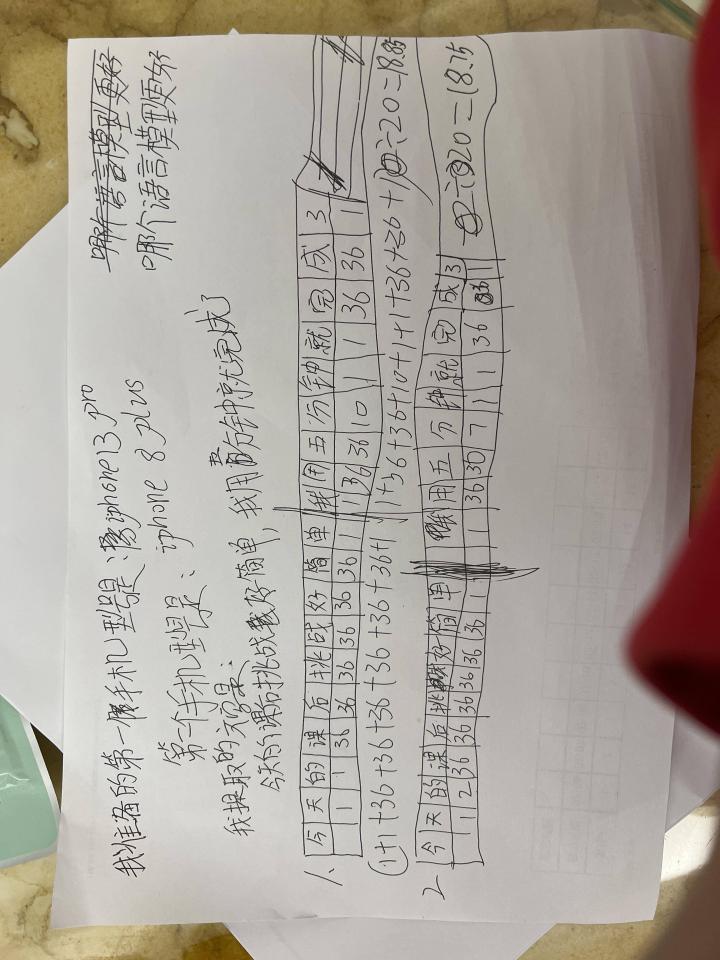 哪个语言模型更好
哪个语言模型更好
我准备的第一个手机型号是：iphone13 pro
第二个手机型号是：iphone 8 plus
我採取的文字是：
今天的课后挑战好简单，我用五分钟就完成了
1、
今天的课后挑战好简单我用五分钟就完成了
1 1 36 36 36 36 36 36 1 1 36 36 10 1 1 36 36 1
(1+1+36+36+36+36+36+36+1+1+36+36+10+1+1+36+36+1)÷20=18.85
2
今天的课后挑战好简单 用五分钟就完成3
1 2 36 36 36 36 36 36 1 1 36 30 7 1 1 36 1
÷20=18.75